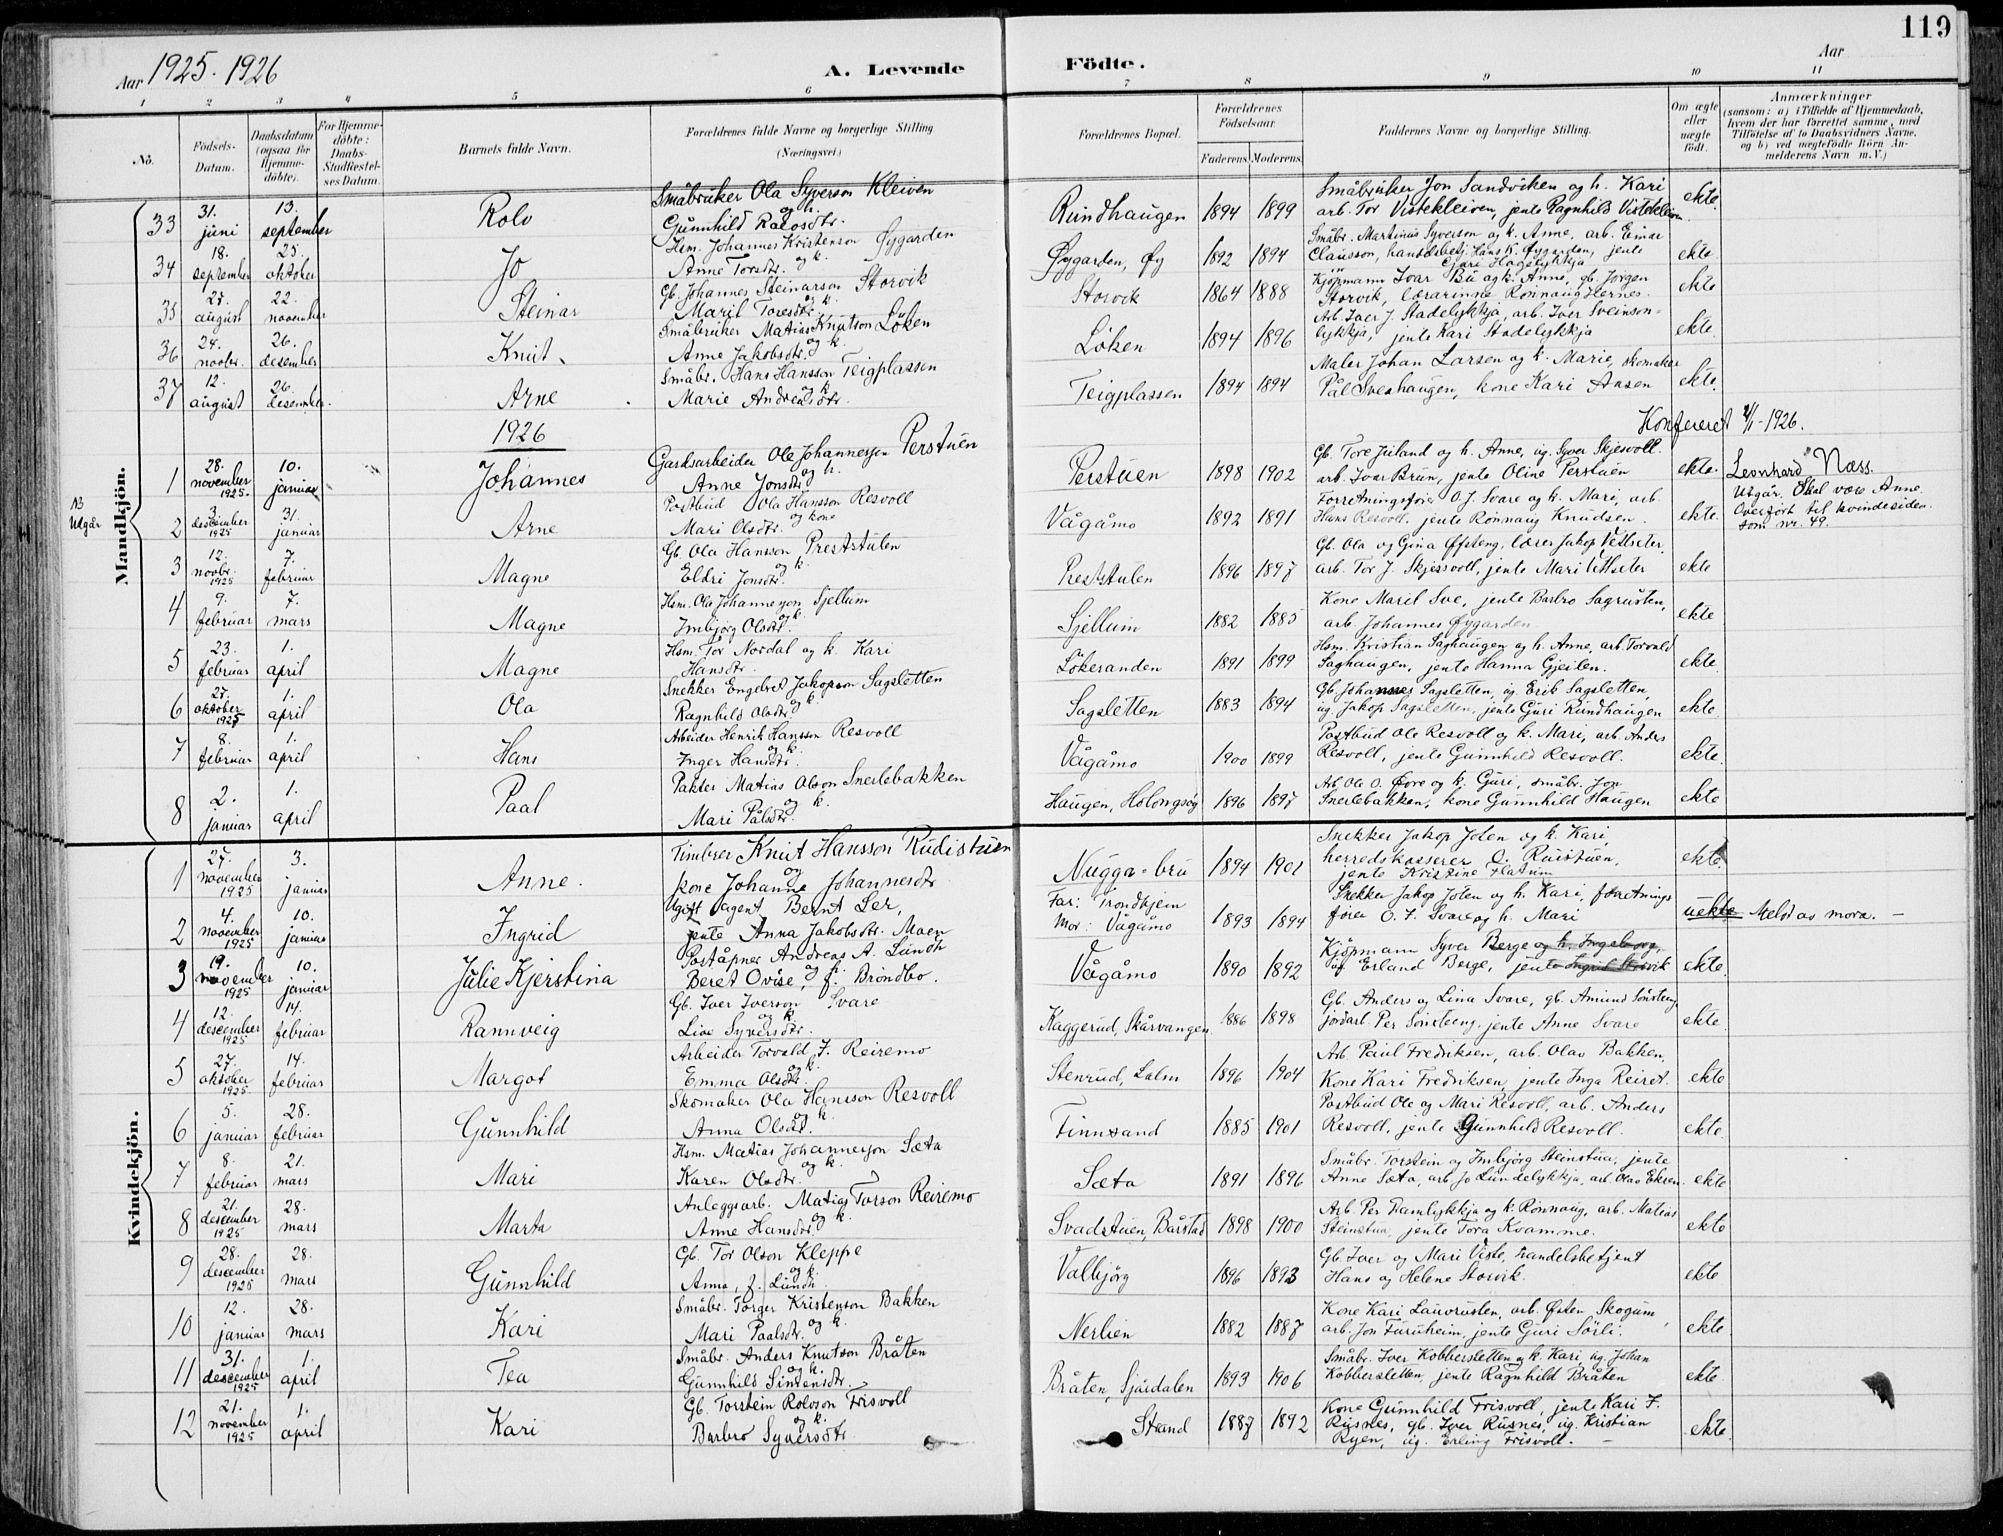 119
Aar 1925. 1926
A. Levende Födte.
Aar
1 2 3 4 5 6 7 8 9 10 11
No.
Födsels-Datum.
Daabsdatum (ogsaa for Hjemme-döbte).
For Hjemme-döbte: Daabs-Stadfæstel-ses Datum.
Barnets fulde Navn.
Forældrenes fulde Navne og borgerlige Stilling (Næringsvei.)
Forældrenes Bopæl.
Forældrenes Födselsaar.
Faderens. Moderens.
Faddernes Navne og borgerlige Stilling.
Om ægte eller uægte födt.
Anmærkninger
(saasom: a) i Tilfælde af Hjemmedaab, hvem der har forrettet samme, med Tilföielse af to Daabsvidners Navne, og b) ved uægtefödte Börn An-melderens Navn m. V.)
Mandkjön.
33 31. juni 13. september Rolv Småbruker Ola Syverson Kleiven og h. Gunnhild Rolvsdtr. Rundhaugen 1894 1899 Småbruker Jon Sandviken og h. Kari arb. Tor Vistekleiven, jente Ragnhild Vistekleiven ekte.
34 18. september 25. oktober Jo Hsm. Johannes Kristenson Øygarden og k. Anne Torsdtr. Øygarden, Øy 1892 1894 Småbr. Martinus Syverson og k. Anne, arb. Einar Clausson, handelsbetj. Hans K. Øygarden, jente Guri Hagelykkja ekte
35 27. august 22. november Steinar Gb. Johannes Steinarson Storvik og k. Marit Toresdtr. Storvik 1864 1888 Kjöpmann Ivar Bu og k. Anne, gb. Jörgen Storvik, lærarinne Rönnaug Hernes. ekte
36 24. novbr. 26. desember Knut. Småbruker Matias Knutson Löken og k. Anne Jakobsdtr. Löken 1894 1896 Arb. Iver J. Stadelykkja, arb. Iver Sveinson-lykkja, jente Kari Stadelykkja ekte
37 12. august 26. desember. Arne Småbr. Hans Hansson Teigplassen og k. Marie Andreasdtr. Teigplassen 1894 1894 Maler Johan Larsen og k. Marie, skomaker Pål Sveahaugen, kone Kari Aasen ekte.
1926
Konfereret 4/1-1926.
1 28. november 1925. 10. januar Johannes Gardsarbeider Ole Johannesson Perstuen og h. Anne Jonsdtr. Perstuen 1898 1902 Gb. Tore Juland og h. Anne, ug. Syver Skjesvoll. arb. Ivar Brun, jente Oline Perstuen ekte. Leonhard Næss.
NB Utgår
2 3. desember 1925 31. januar Arne Postbud Ola Hansson Resvoll og kone Mari Olsdtr. Vågåmo 1892 1891 Forretningsförer O. J. Svare og k. Mari, arb. Hans Resvoll, jente Rönnaug Knudsen. ekte. Utgår. Skal være Anne. Overfört til kvindesiden som nr. 49.
3 12. novbr. 1925 7. februar Magne Gb. Ola Hansson Preststulen og k. Eldri Jonsdtr. Preststulen 1896 1897 Gb. Ola og Gina Öfsteng, lærer Jakop Vetlseter, arb. Tor J. Skjesvoll, jente Mari Vetlseter ekte
4 9. februar 7. mars Magne Hsm. Ola Johannesson Sjellum og k. Imbjörg Olsdtr. Sjellum 1882 1885 Kone Marit Sve, jente Barbro Sagrusten, arb. Johannes Øygarden ekte
5 23. februar 1. april Magne Hsm. Tor Nordal og k. Kari Hansdtr. Lökeranden 1891 1899 Hsm. Kristian Saghaugen og h. Anne, arb. Torvald Saghaugen, jente Hanna Gjeilen. ekte.
6 27. oktober 1925 1. april Ola Snekker Engebret Jakopson Sagsletten og k. Ragnhild Olsdtr. Sagsletten 1883 1894 Gb. Johannes Sagsletten, ug. Erik Sagsletten, ug. Jakop Sagsletten, jente Guri Rundhaugen ekte.
7 8. februar 1. april Hans Arbeider Henrik Hansson Resvoll og k. Inger Hansdtr. Vågåmo 1900 1899 Postbud Ole Resvoll og k. Mari, arb. Anders Resvoll, jente Gunnhild Resvoll. ekte.
8 2. januar 1. april Paal Pakter Matias Olson Snerlebakken og k. Mari Pålsdtr. Haugen, Holongsøy 1896 1897 Arb. Ole O. Øvre og k. Guri, småbr. Jon Snerlebakken, kone Gunnhild Haugen ekte
Kvindekjön.
1 27. november 1925 3. januar Anne. Timbrer Knut Hansson Rudistuen og kone Johanne Johannesdtr Nugga-bru 1894 1901 Snekker Jakop Jolen og h. Kari, herredskasserer O. Ruistuen, jente Kristine Flatum ekte
2 4. november 1925 10. januar Ingrid Ugift agent Bernt Ler, jente Anna Jakobsdtr. Moen Far: Trondhjem Mor: Vågåmo 1893 1894 Snekker Jakop Jolen og h. Kari, forretnings förer O. J. Svare og h. Mari uekte Meldt av mora. —
3 19. november 1925 10. januar Julie Kjerstina Poståpner Andreas A. Lundh og h. Beret Ovise, f. Bröndbo. Vågåmo 1890 1892 Kjöpmann Syver Berge og h. Ingeborg, ug Erland Berge, jente Ingrid Storvik ekte.
4 12. desember 1925 14. februar Rannveig Gb. Iver Iverson Svare og k. Live Syversdtr. Kaggerud, Skårvangen 1886 1898 Gb. Anders og Lina Svare, gb. Amund Sönsteng, jordarb. Per Sönsteng, jente Anne Svare ekte.
5 27. oktober 1925 14. februar Margot Arbeider Torvald F. Reiremo og k. Emma Olsdtr. Stenrud, Lalm 1896 1904 Arb. Paul Fredriksen, arb. Olav Bakken, Kone Kari Fredriksen, jente Inga Reiret. ekte
6 5. januar 28. februar Gunnhild Skomaker Ola Hansson Resvoll og k. Anna Olsdtr. Finnsand 1885 1901 Postbud Ole og Mari Resvoll, arb. Anders Resvoll, jente Gunnhild Resvoll. ekte.
7 8. februar 21. mars Mari Hsm. Matias Johannesson Sæta og k. Karen Olsdtr. Sæta 1891 1896 Småbr. Torstein og Imbjörg Steinstua, jente Anne Sæta, arb. Jo Lundelykkja, arb. Olav Ekren. ekte
8 21. desember 1925 28. mars Marta Anleggsarb. Matias Torson Reiremo og k. Anne Hansdtr. Svadstuen, Bårstad 1898 1900 Arb. Per Framlykkja og k. Rönnaug, arb. Matias Steinstua, jente Tora Kvamme. ekte
9 28. desember 1925 28. mars Gunnhild Gb. Tor Olson Kleppe og k. Anna, f. Lundh. Valbjörg 1896 1893 Gb. Iver og Mari Viste, handelsbetjent Hans og Helene Storvik. ekte
10 12. januar 28. mars Kari Småbr. Torger Kristenson Bakken og k. Mari Paalsdtr. Nerlien 1882 1887 Kone Kari Laurusten, arb. Østen Skogum, arb. Jon Furuheim, jente Guri Sörli. ekte
11 31. desember 1925 1. april Tea Småbr. Anders Knutson Bråten og k. Gunnhild Simensdtr. Bråten, Sjårdalen 1893 1906 Småbr. Iver Kobbersletten og k. Kari, ug. Johan Kobbersletten, jente Ragnhild Bråten ekte.
12 21. november 1925 1. april Kari Gb. Torstein Rolvson Frisvoll og k. Barbro Syversdtr. Strand 1887 1892 Kone Gunnhild Frisvoll, jente Kari F. Rusnes, gb. Iver Rusnes, ug. Kristian Ryen, ug. Erling Frisvoll. — ekte